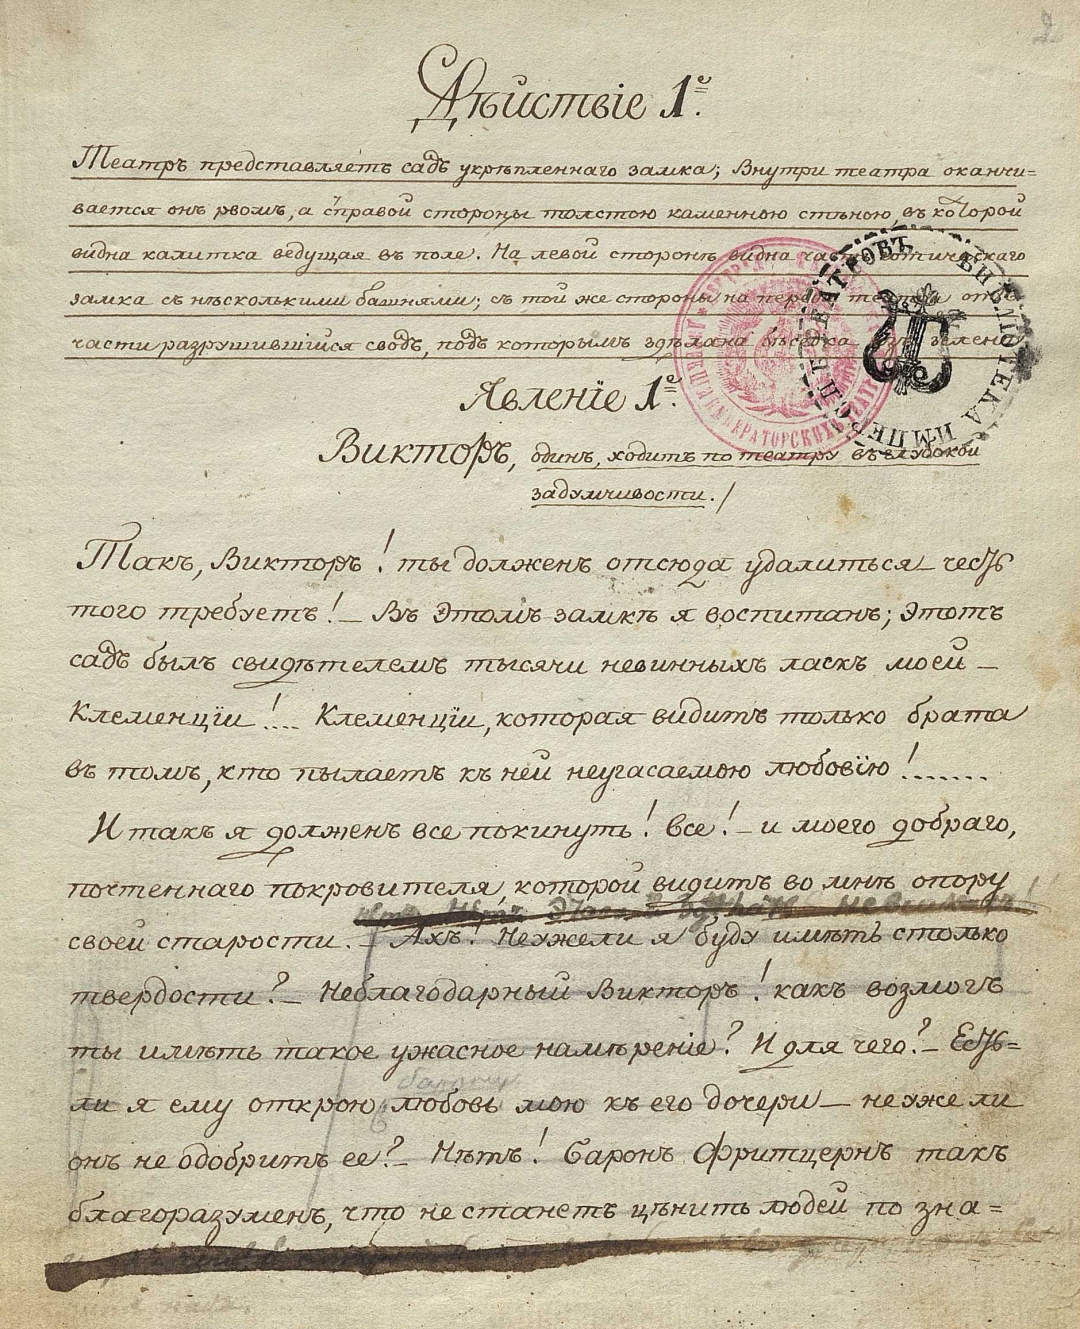 2
Дѣйствіе 1е.
Театръ представляетъ садъ укрѣпленнаго замка; Внутри театра оканчи=
вается онъ рвомъ, а справой стороны толстою каменною стѣною, въ которой
видна калитка ведущая въ поле. На левой сторонѣ видна часть готическаго
замка съ нѣсколькими башнями; съ той же стороны на
части разрушившійся сводъ, подъ которымъ здѣлана бѣседка
БИБЛІОТЕКА ИМПЕР СПБ ТЕАТРОВЪ
ИМПЕРАТОРСКИХЪ ТЕАТР
Явленіе 1е.
Викторъ, одинъ, ходитъ по театру въ глубокой
задумчивости./
Такъ, Викторъ! ты долженъ отсюда удалиться – честь
того требуетъ! – Въ Этомъ замкѣ я воспитанъ; Этотъ
садъ былъ свидѣтелемъ тысячи невинныхъ ласкъ моей –
Клеменціи!... Клеменціи, которая видитъ только брата
въ томъ, кто пылаетъ къ ней неугасаемою любовію!.......
И такъ я долженъ все покинуть! Все! – и моего добраго,
почтеннаго покровителя, которой видитъ во мнѣ опору
своей старости. – Ахъ! Неужели я буду имѣть столько
твердости? – Неблагодарный Викторъ! какъ возмогъ
ты имѣть такое ужасное намѣреніе? И для чего? – Есть=
ли я ему открою любовь мою къ его дочери – неуже ли
онъ не одобритъ ее? – Нѣтъ! Баронъ Фритцернъ такъ
благоразуменъ, что не станетъ цѣнить людей по зна=